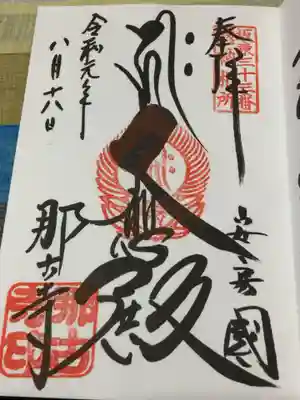 奉拝
坂東三十三番
安房國
大悲殿
那古寺
令和元年
八月十八日
那古寺印